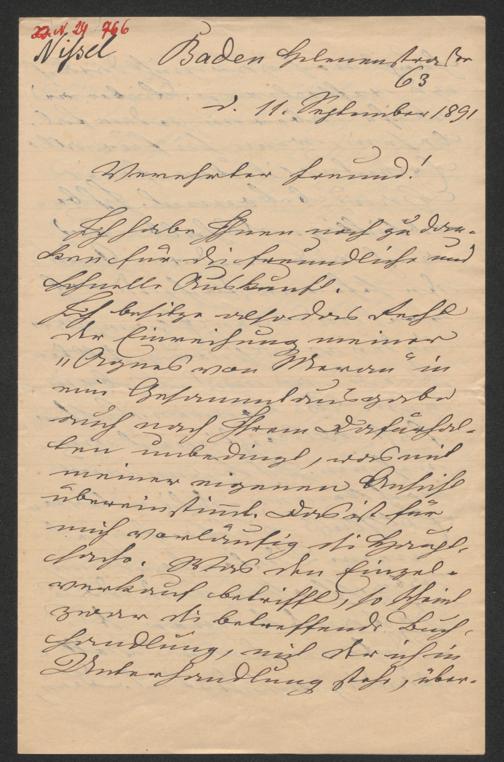 I.N. 24 766
Nissel
Baden Helenenstraße
63
d. 11. September 1891
Verehrter Freund!
Ich habe Ihnen noch zu dan-
ken für die freundliche und
schnelle Auskunft.
Ich besitze also das Recht
der Einreihung meiner
„Agnes von Meran“ in
eine Gesammtausgabe
auch nach Ihrem Dafürhal-
ten unbedingt, was mit
meiner eigenen Ansicht
übereinstimmt. Das ist für
mich vorläufig die Haupt-
sache. Was den Einzel-
verkauf betrifft, so scheint
zwar die betreffende Buch-
handlung, mit der ich in
Unterhandlung stehe, über-